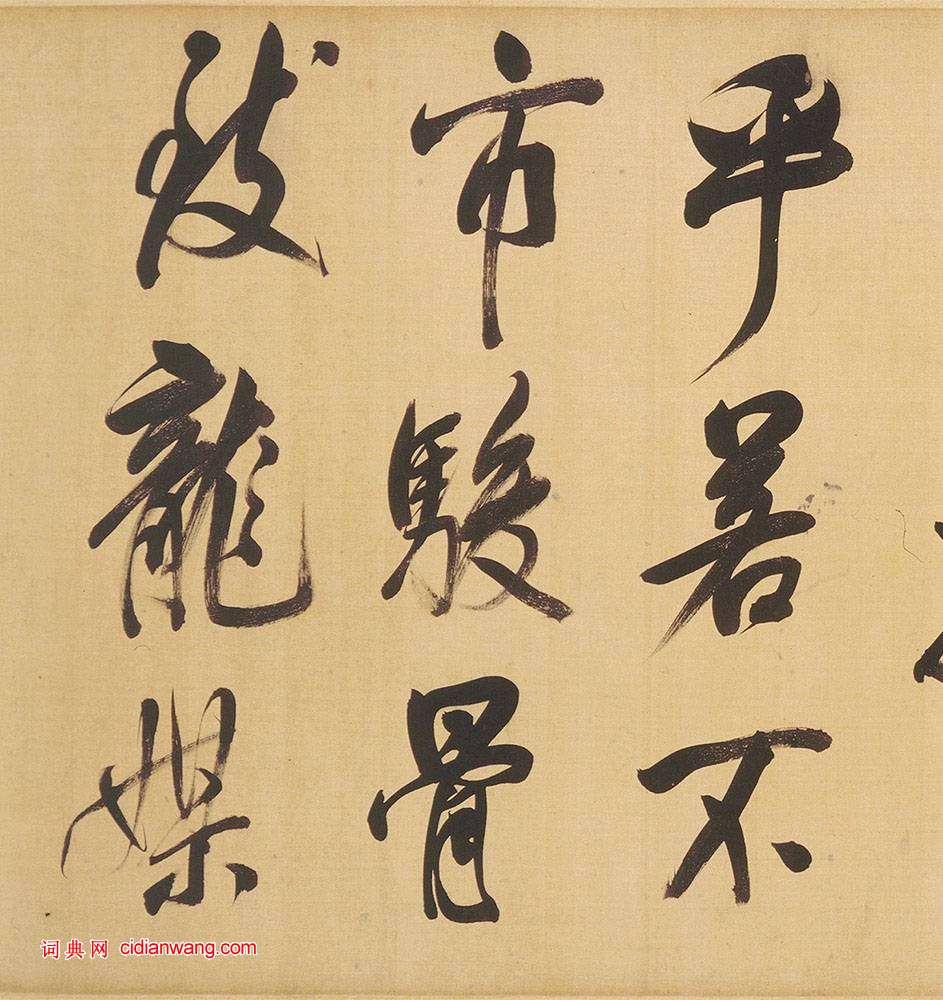 平若不
市駿骨
致龍媒
词典网 cidianwang.com